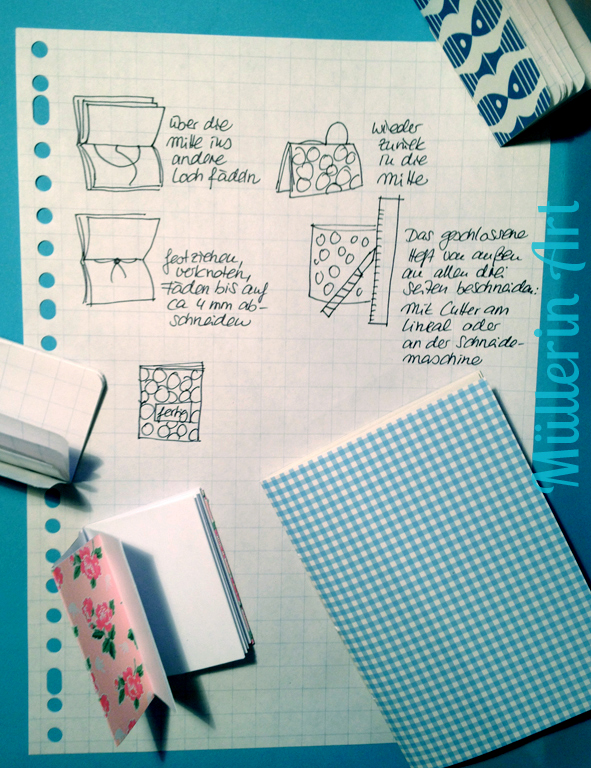 über die
mitte ins
andere
Loch fädeln
wieder
zurück
in die
mitte
festziehen,
verknoten,
Fäden bis auf
ca 4 mm ab-
schneiden
Das geschlossene
Heft von außen
an allen drei
Seiten beschneiden:
mit Cutter am
Lineal oder
an der Schneide-
maschine
fertig
Müllerin Art